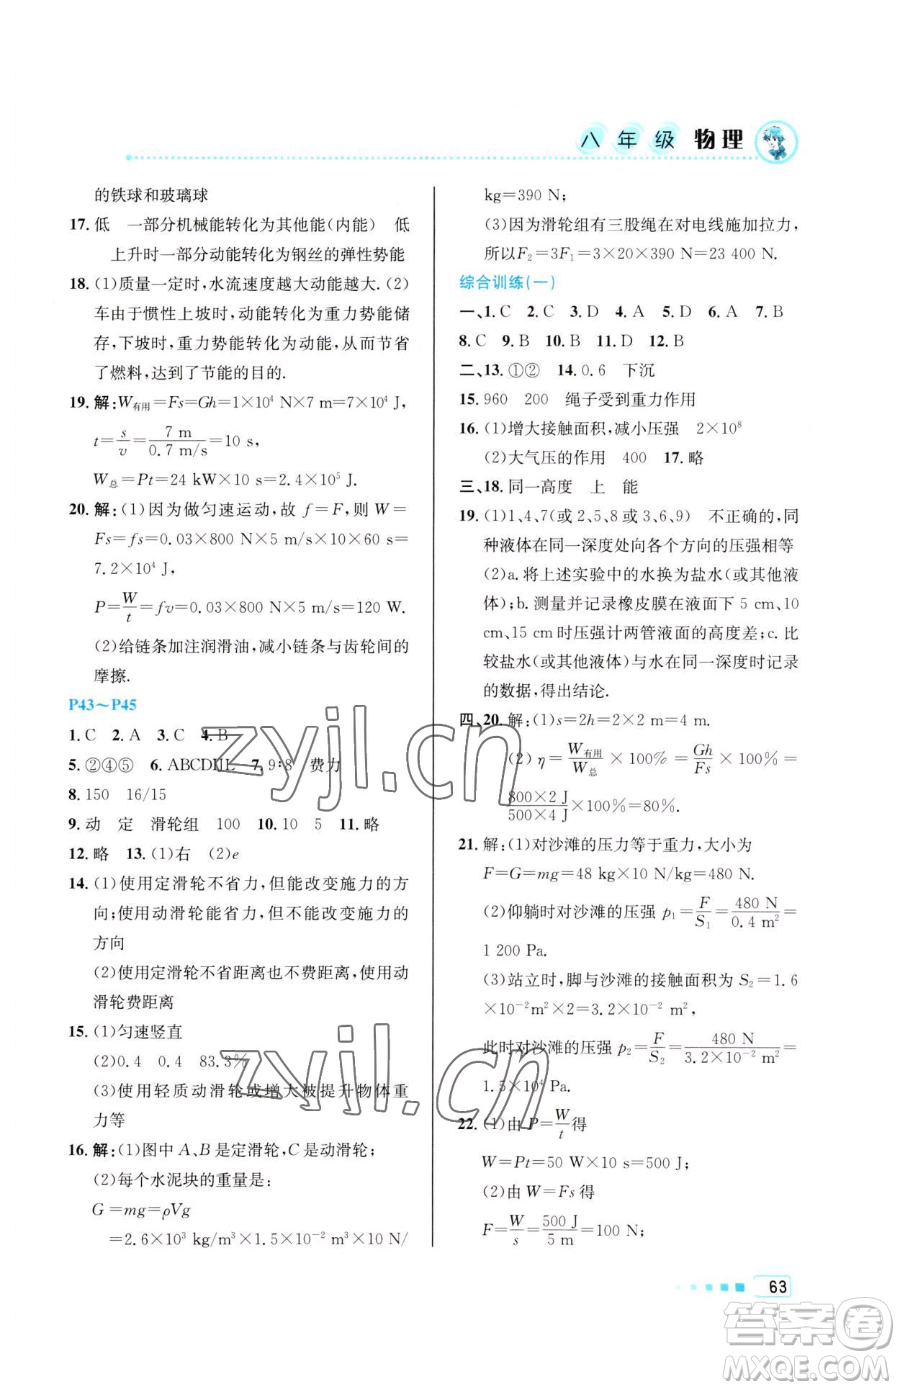 八年级 物理
的铁球和玻璃球
17. 低 一部分机械能转化为其他能(内能) 低
上升时一部分动能转化为钢丝的弹性势能
18. (1)质量一定时,水流速度越大动能越大. (2)
车由于惯性上坡时,动能转化为重力势能储
存,下坡时,重力势能转化为动能,从而节省
了燃料,达到了节能的目的.
19. 解:W有用=Fs=Gh=1×10⁴ N×7 m=7×10⁴ J,
t=s/v=7 m/0.7 m/s=10 s,
W总=Pt=24 kW×10 s=2.4×10⁵ J.
20. 解:(1)因为做匀速运动,故 f=F,则 W=
Fs=fs=0.03×800 N×5 m/s×10×60 s=
7.2×10⁴ J,
P=W/t=fv=0.03×800 N×5 m/s=120 W.
(2)给链条加注润滑油,减小链条与齿轮间的
摩擦.
P43~P45
1. C 2. A 3. C 4. B
5. ②④⑤ 6. ABCDIJL 7. 9:8 费力
8. 150 16/15
9. 动 定 滑轮组 100 10. 10 5 11. 略
12. 略 13. (1)右 (2)e
14. (1)使用定滑轮不省力,但能改变施力的方
向;使用动滑轮能省力,但不能改变施力的
方向
(2)使用定滑轮不省距离,而使用动
滑轮费距离
15. (1)匀速竖直
(2)0.4 0.4 83.3%
(3)使用轻质动滑轮或增大被提升物体重
力等
16. 解:(1)图中 A、B 是定滑轮,C 是动滑轮;
(2)每个水泥块的重量是:
G=mg=ρVg
=2.6×10³ kg/m³×1.5×10⁻² m³×10 N/
kg=390 N;
(3)因为滑轮组有三股绳在对电线施加拉力,
所以F₂=3F₁=3×20×390 N=23 400 N.
综合训练(一)
一、1. C 2. C 3. D 4. A 5. D 6. A 7. B
8. C 9. B 10. B 11. D 12. B
二、13. ①② 14. 0.6 下沉
15. 960 200 绳子受到重力作用
16. (1)增大接触面积,减小压强 2×10⁸
(2)大气压的作用 400 17. 略
三、18. 同一高度 上 能
19. (1)1、4、7(或 2、5、8 或 3、6、9) 不正确的,同
种液体在同一深度处向各个方向的压强相等
(2)a. 将上述实验中的水换为盐水(或其他液
体);b. 测量并记录橡皮膜在液面下 5 cm、10
cm、15 cm 时压强计两管液面的高度差;c. 比
较盐水(或其他液体)与水在同一深度时记录
的数据,得出结论.
四、20. 解:(1)s=2h=2×2 m=4 m.
(2)η=W有用/W总×100%=Gh/Fs×100%=
800×2 J/500×4 J×100%=80%.
21. 解:(1)对沙滩的压力等于重力,大小为
F=G=mg=48 kg×10 N/kg=480 N.
(2)仰躺时对沙滩的压强 p₁=F/S₁=480 N/0.4 m²=
1 200 Pa.
(3)站立时,脚与沙滩的接触面积为 S₂=1.6
×10⁻² m²×2=3.2×10⁻² m²,
此时对沙滩的压强 p₂=F/S₂=480 N/3.2×10⁻² m²=
1.5×10⁴ Pa.
22. (1)由 P=W/t得
W=Pt=50 W×10 s=500 J;
(2)由 W=Fs 得
F=W/s=500 J/5 m=100 N;
63
zyjl.cn
zyjl.cn
答案圈
MXQE.COM